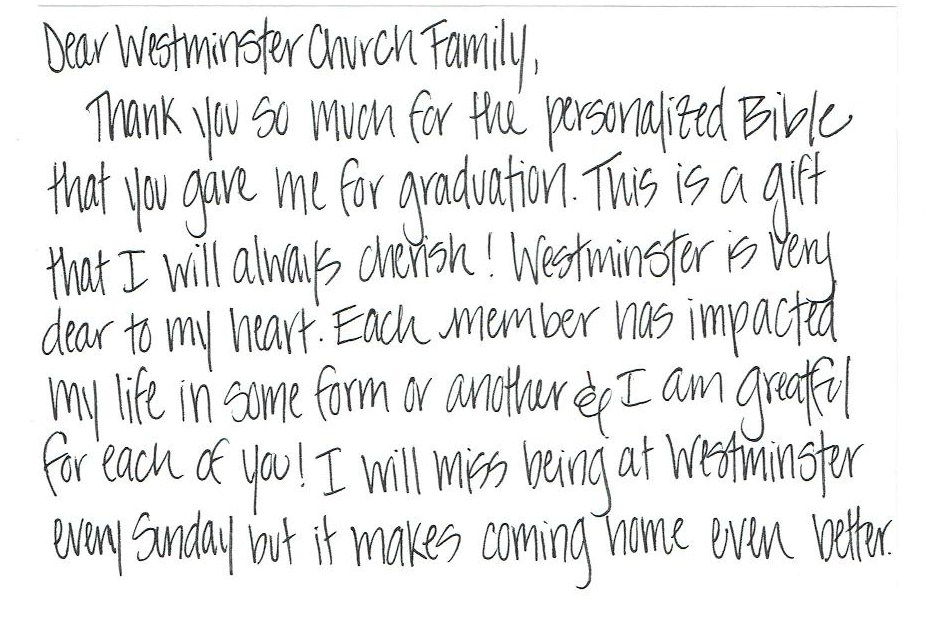 Dear Westminster Church Family,
Thank you so much for the personalized Bible
that you gave me for graduation. This is a gift
that I will always cherish! Westminster is very
dear to my heart. Each member has impacted
my life in some form or another & I am greatful
for each of you! I will miss being at Westminster
every Sunday but it makes coming home even better.